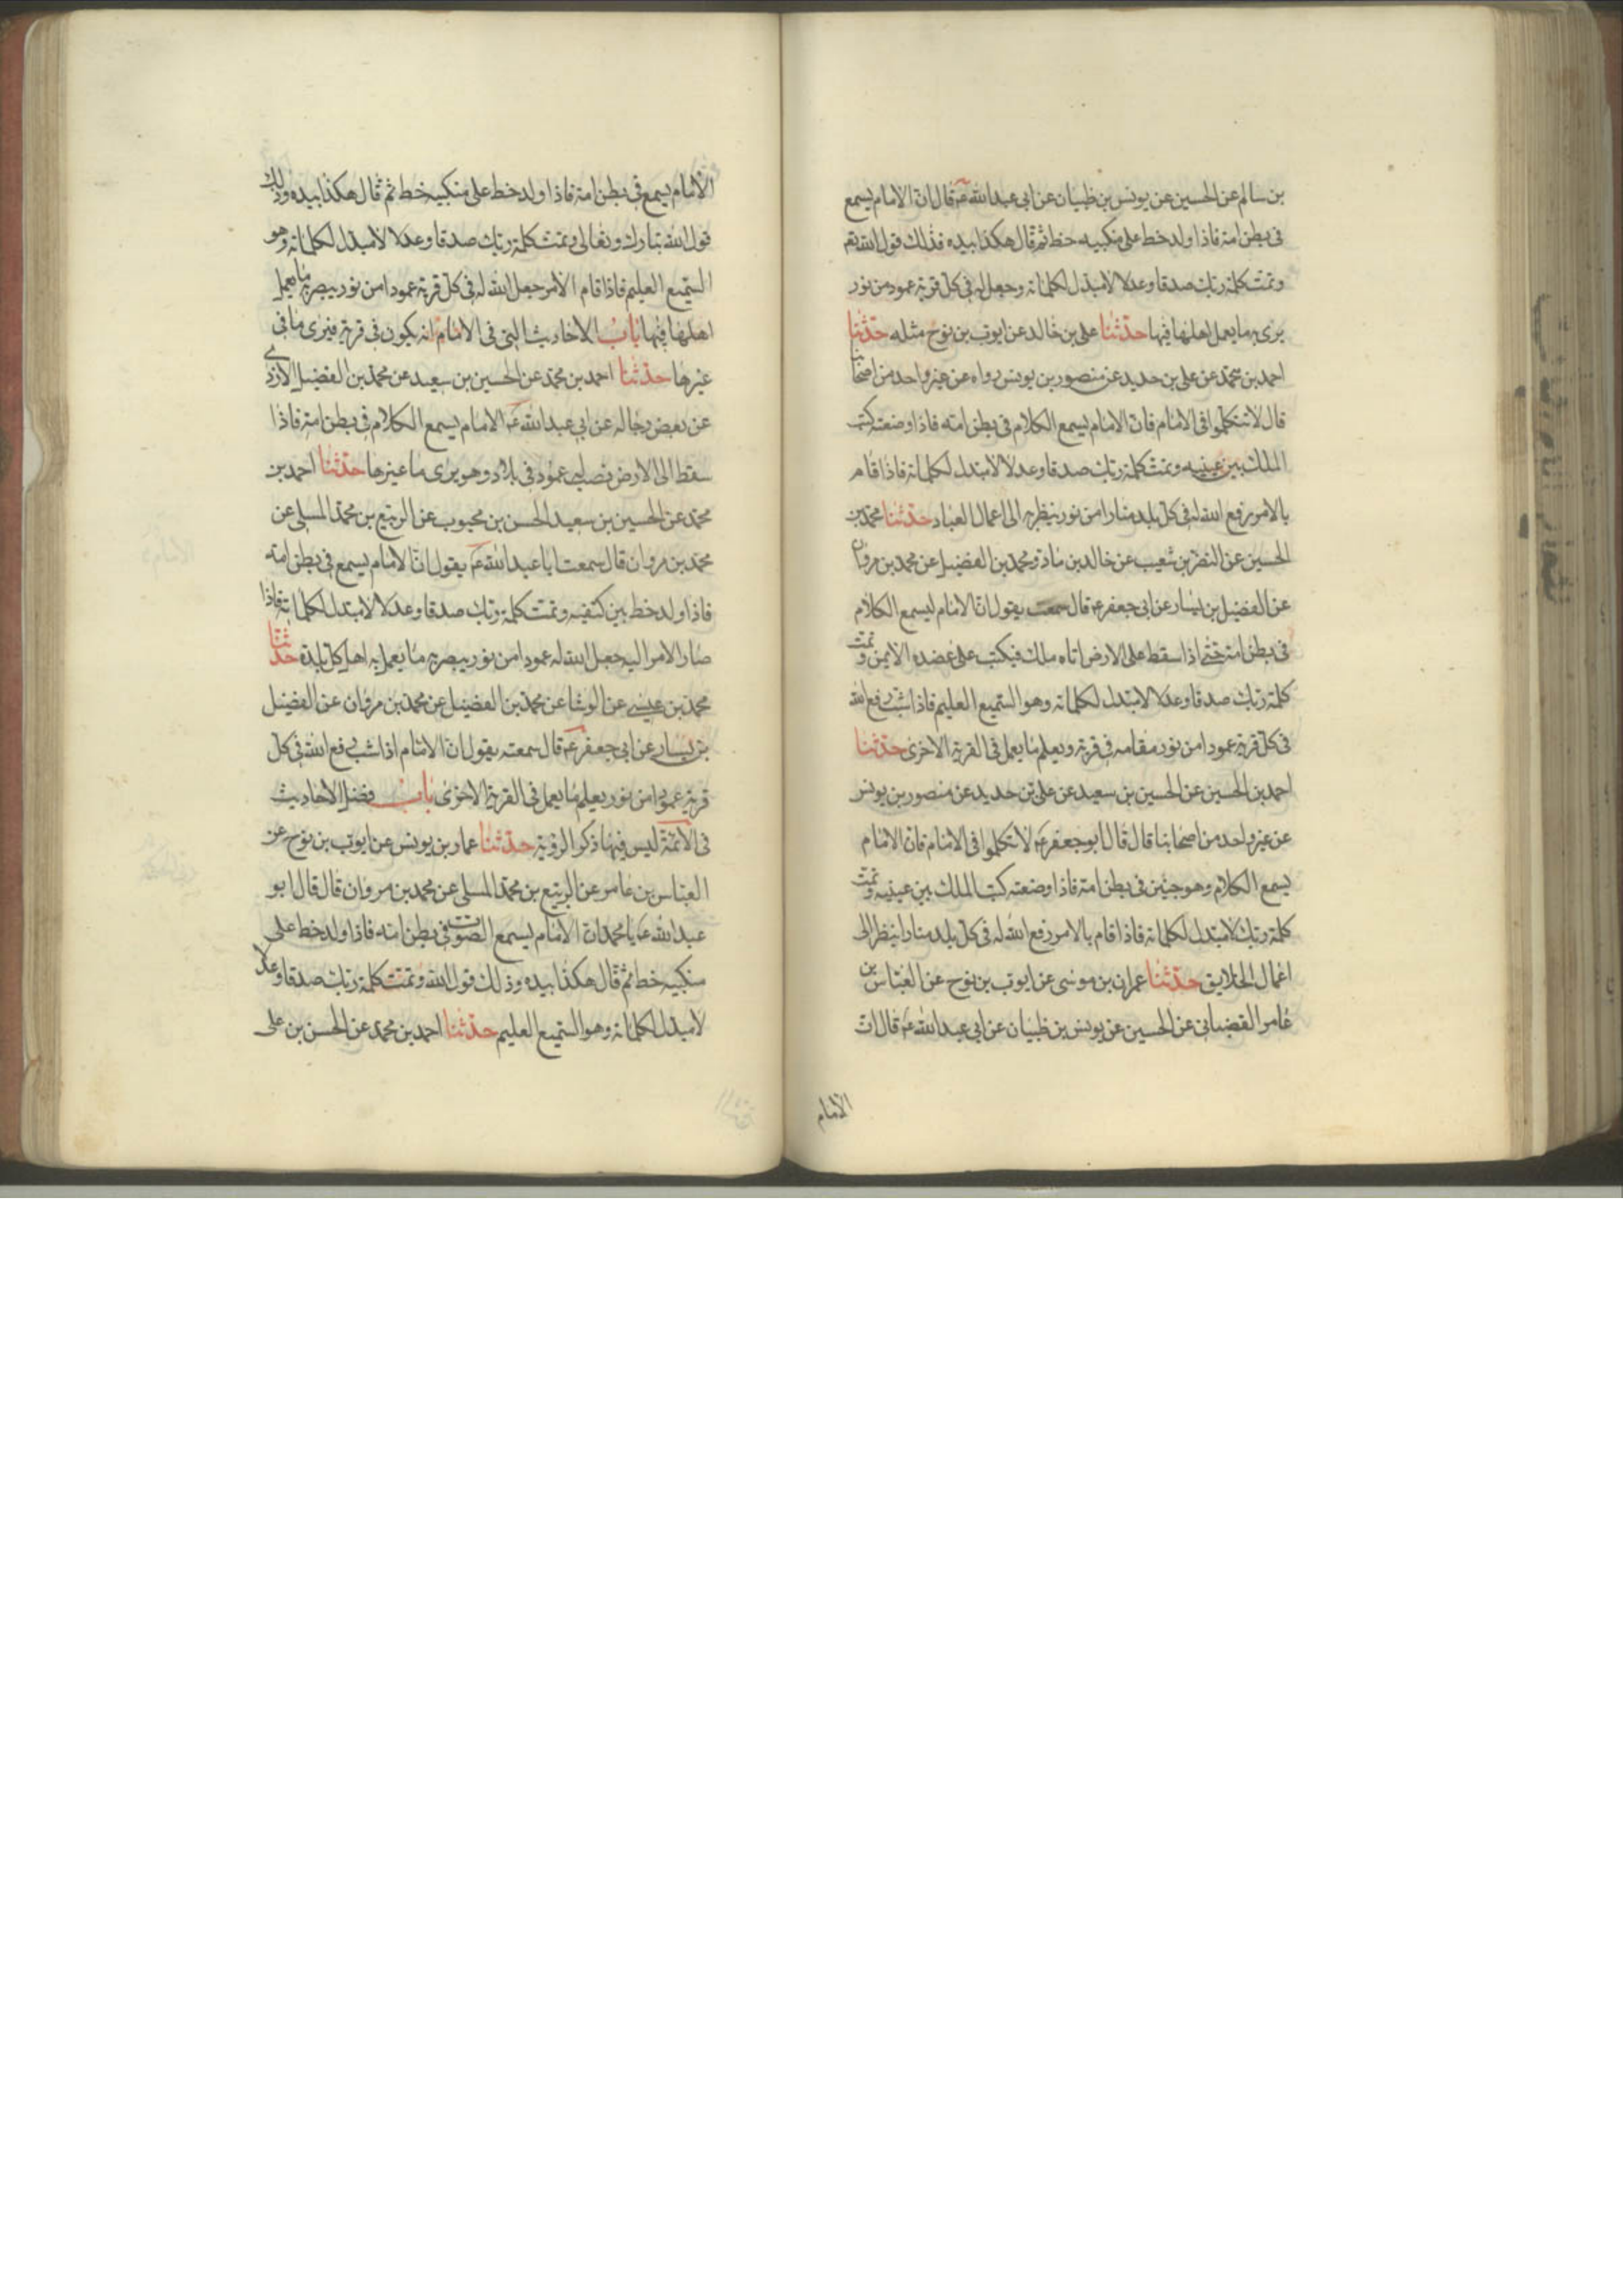 بن سالم عن الحسين عن يونس بن ظبيان عن ابى عبدالله ع قال ان الامام يسمع
فى بطن امه فاذا ولد خط على منكبيه خط ثم قال هكذا بيده فذلك قول الله تعم
وتمت كلمة ربك صدقا وعدلا لا مبدل لكلماته وجعل له فى كل قرية عمود من نور
يرى به ما يعمل اهلها فيها حدثنا على بن خالد عن ايوب بن نوح مثله حدثنا
احمد بن محمد عن على بن حديد عن منصور بن يونس رواه عن غير واحد من اصحابنا
قال لا تتكلموا فى الامام فان الامام يسمع الكلام فى بطن امه فاذا وضعته كتب
الملك بين عينيه وتمت كلمة ربك صدقا وعدلا لا مبدل لكلماته فاذا قام
بالامر رفع الله له فى كل بلد منارا من نور ينظر به الى اعمال العباد حدثنا محمد بن
الحسين عن النضر بن شعيب عن خالد بن ماد ومحمد بن الفضيل عن محمد بن مروان
عن الفضيل بن يسار عن ابى جعفر ع قال سمعت يقول ان الامام ليسمع الكلام
فى بطن امه حتى اذا سقط على الارض اتاه ملك فيكتب على عضده الايمن وتمت
كلمة ربك صدقا وعدلا لا مبدل لكلماته وهو السميع العليم فاذا شب رفع الله
فى كل قرية عمودا من نور مقامه فى قرية ويعلم ما يعمل فى القرية الاخرى حدثنا
احمد بن الحسين عن الحسين بن سعيد عن على بن حديد عن منصور بن يونس
عن غير واحد من اصحابنا قال قال ابو جعفر ع لا تتكلموا فى الامام فان الامام
يسمع الكلام وهو جنين فى بطن امه فاذا وضعته كتب الملك بين عينيه وتمت
كلمة ربك لا مبدل لكلماته فاذا قام بالامر رفع الله له فى كل بلد منارا ينظر الى
اعمال الخلايق حدثنا عمران بن موسى عن ايوب بن نوح عن العباس بن
عامر القضبانى عن الحسين عن يونس بن ظبيان عن ابى عبدالله ع قال ان
الامام
الامام يسمع فى بطن امه فاذا ولد خط على منكبيه خط ثم قال هكذا بيده وذلك
قول الله تبارك وتعالى وتمت كلمة ربك صدقا وعدلا لا مبدل لكلماته وهو
السميع العليم فاذا قام الامر جعل الله له فى كل قرية عمودا من نور يبصر به ما يعمل
اهلها فيها باب الاحاديث التى فى الامام انه يكون فى قرية فيرى ما فى
غيرها حدثنا احمد بن محمد عن الحسين بن سعيد عن محمد بن الفضيل الازدى
عن بعض رجاله عن ابى عبدالله ع الامام يسمع الكلام فى بطن امه فاذا
سقط الى الارض نصب له عمود فى بلاده وهو يرى ما غيرها حدثنا احمد بن
محمد عن الحسين بن سعيد الحسن بن محبوب عن الربيع بن محمد المسلى عن
محمد بن مروان قال سمعت ابا عبدالله ع يقول ان الامام يسمع فى بطن امه
فاذا ولد خط بين كتفيه وتمت كلمة ربك صدقا وعدلا لا مبدل لكلماته فاذا
صار الامر اليه جعل الله له عمودا من نور يبصر به ما يعمل به اهل كل بلدة حدثنا
محمد بن عيسى عن الوشا عن محمد بن الفضيل عن محمد بن مروان عن الفضيل
بن يسار عن ابى جعفر ع قال سمعته يقول ان الامام اذا شب رفع الله فى كل
قرية عمودا من نور يعلم ما يعمل فى القرية الاخرى باب فضل الاحاديث
فى الائمة ليس فيها ذكر الرؤية حدثنا عمار بن يونس عن ايوب بن نوح عن
العباس بن عامر عن الربيع بن محمد المسلى عن محمد بن مروان قال قال ابو
عبدالله ع يا محمد ان الامام ليسمع الصوت فى بطن امه فاذا ولد خط على
منكبيه خط ثم قال هكذا بيده وذلك قول الله وتمت كلمة ربك صدقا وعدلا
لا مبدل لكلماته وهو السميع العليم حدثنا احمد بن محمد عن الحسن بن على